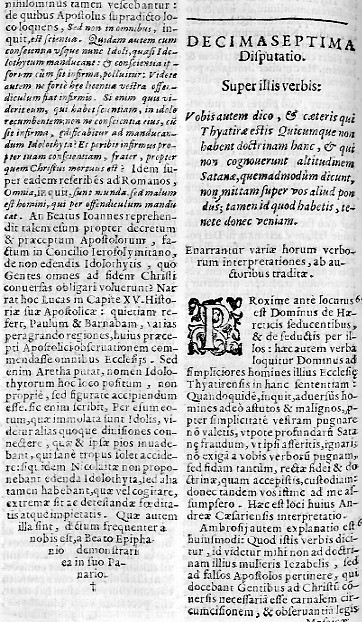 minimlominus tamen vescebantur :
de quibus Apostolus supradicto lo-
co loquens, Sed non in omnibus, in-
quit, est scientia. Quidam autem cum
conscientia vsque nunc Idoli, quasi Ido-
lothytum manducant: & conscientia ip-
sorum cùm sit infirma, polluitur. Videte
autem ne fortè hæc licentia vestra offen-
diculum fiat infirmis. Si enim quis vi-
derit eum, qui habet scientiam, in idolo
recumbentem, non ne conscientia eius, cùm
sit infirma, ædificabitur ad manducan-
dum Idolothyta? Et peribit infirmus pro-
pter tuam conscientiam, frater, propter
quem Christus mortuus est? Idem su-
per eadem re scribés ad Romanos,
Omnia, inquit, sunt munda, sed malum
est homini, qui per offendiculum mandu-
cat. An Beatus Ioannes reprehen-
dit talem esum propter decretum
& præceptum Apostolorum, fa-
ctum in Concilio Ierosolymitano,
de non edendis Idolothytis, quo
Gentes omnes ad fidem Christi
conuersas obligari voluerunt? Nar
rat hoc Lucas in Capite XV. Histo-
riæ suæ Apostolicæ: quietiam re-
fert, Paulum & Barnabam, varias
peragrando regiones, huius præce-
pti Apostolici obseruationem com-
mendasse omnibus Ecclesijs. Sed
enim Aretha putat, nomen Idolo-
thytorum hoc loco positum, non
propriè, sed figuratè accipiendum
esse. sic enim scribit, Per esum eo-
rum, quæ immolata sunt Idolis, vi-
detur alias quoque diuisiones con-
nectere, quæ & ipsæ pios inuade-
bant, qui sanè tropus solet accide-
re: siquidem Nicolaitæ non propo-
nebant edenda Idolothyta, sed alia
tamen habebant, quæ vel cogitare,
extremæ sit ac detestandæ fœdita-
tis atque impietatis. Quæ autem
illa sint, dictum frequenter a
nobis est, a Beato Epipha
nio demonstrari
ea in suo Pa-
nario.
†
DECIMASEPTIMA
Disputatio.
Super illis verbis:
Vobis autem dico, & cæteris qui
Thyatiræ estis Quicumque non
habent doctrinam hanc, & qui
non cognouerunt altitudinem
Satanæ, quemadmodum dicunt,
non mittam super vos aliud pon
dus; tamen id quod habetis, te-
nete donec veniam.
Enarrantur variæ horum verbo-
rum interpretationes, ab au-
ctoribus traditæ.
PRoxime antè locutus
est Dominus de Hæ-
reticis seducentibus,
& de seductis per il-
los: hæc autem verba
loquitur Dominus ad
simpliciores homines illius Ecclesiæ
Thyatirensis in hanc sententiam:
Quandoquidé, inquit, aduersùs ho-
mines adeò astutos & malignos, p-
pter simplicitatê vestram pugnare
nô valetis, vtpote profundû Sata
næ fraudum, vt ipsi asseritis, ignari:
nō exigā a vobis verborū pugnam,
sed fidam tantùm, rectæ fidei & do-
ctrinæ, quam accepistis, custodiam:
donec tandem vos istinc ad me as-
sumpsero. Hæc est loci huius An-
dreæ Cæsariensis interpretatio.
Ambrosij autem explanatio est
huiusmodi: Quod istis verbis dici
tur, id videtur mihi non ad doctri-
nam illius mulieris Iezabelis, sed
ad falsos Apostolos pertinere, qui
docebant Gentibus ad Christū cō
uersis necessaria esse carnalem cir
cumcisionem, & obseruantiã legis